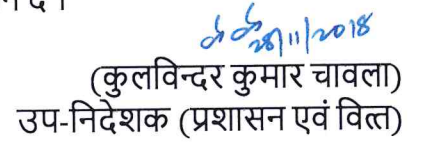 28/11/2018
(कुलविन्दर कुमार चावला)
उप-निदेशक (प्रशासन एवं वित्त)